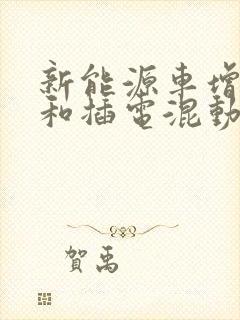 新能源車增
和插電混動
賀禹